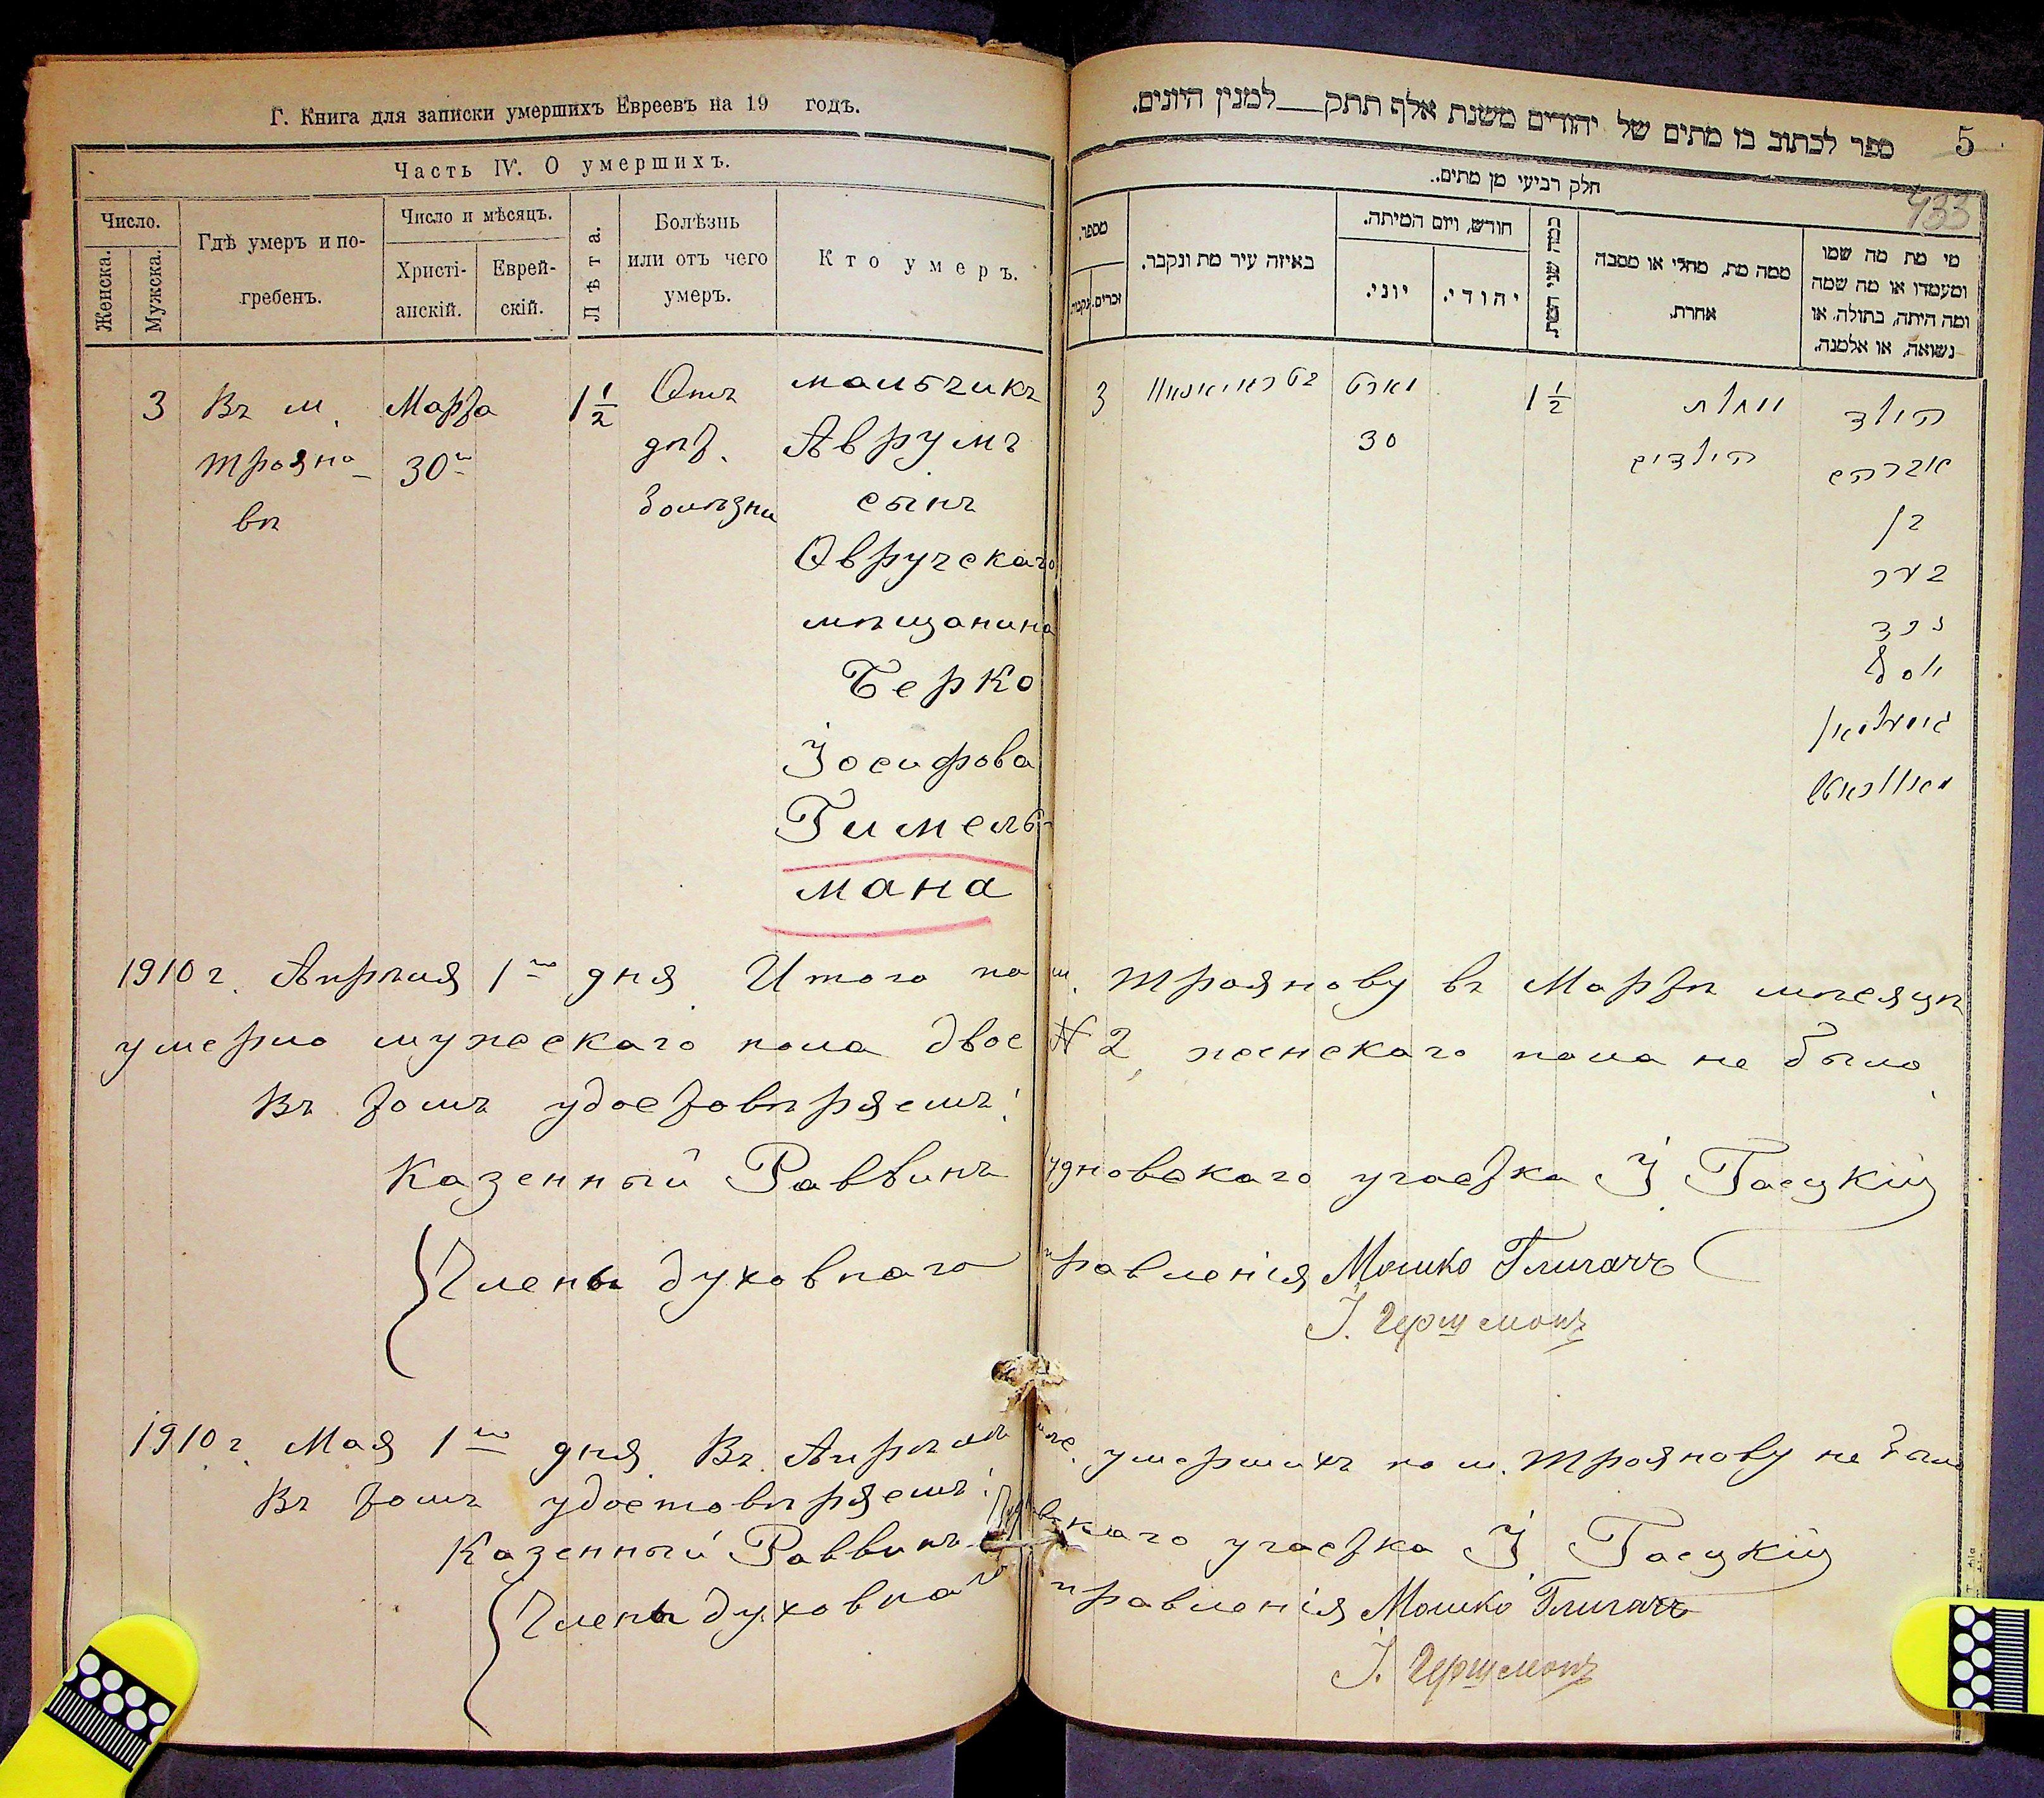 Г. Книга для записки умершихъ Евреевъ на 19 годъ.
Часть IV. О умершихъ.
Число.
Женска.
Мужска.
Гдѣ умеръ и по-
гребенъ.
Число и мѣсяцъ.
Христі-
анскій.
Еврей-
скій.
Лѣта.
Болѣзнь
или отъ чего
умеръ.
Кто умеръ.
3
Въ м.
Трояно-
вѣ
Марта
30го
1 1/2
Отъ
дѣт.
болѣзни
мальчикъ
Аврумъ
сынъ
Овручскаго
мѣщанина
Берко
Іосифова
Гимель-
мана
ספר לכתוב בו מתים של יהודים משנת אלף תתק__למנין היונים.
5
433
חלק רביעי מן מתים.
מספר.
זכרים.
נקבות.
באיזה עיר מת ונקבר.
חודש, ויום המיתה.
יוני.
יהודי.
כמה שני השת
ממה מת, מחלי או מסבה
אחרת.
מי מת מה שמו
ומעמדו או מה שמה
ומה היתה, בתולה, או
נשואה, או אלמנה.
3
מארט
30
1 1/2
מחלת
הילדים
הילד
אברהם
בן
בער
נכד
יוסף
1910 г. Апрѣля 1го дня. Итого по м. Троянову въ Мартѣ мѣсяцѣ
умерло мужескаго пола двое № 2, женскаго пола не было.
Въ томъ удостовѣряемъ:
Казенный Раввинъ Чудновскаго участка І. Гасцкій
Члены духовнаго правленія Мошко Глигачъ
1910 г. Мая 1го дня. Въ Апрѣлѣ м-цѣ. умершихъ по м. Троянову не было
Въ томъ удостовѣряемъ:
Казенный Раввинъ Чудновскаго участка І. Гасцкій
Члены духовнаго правленія Мошко Глигачъ